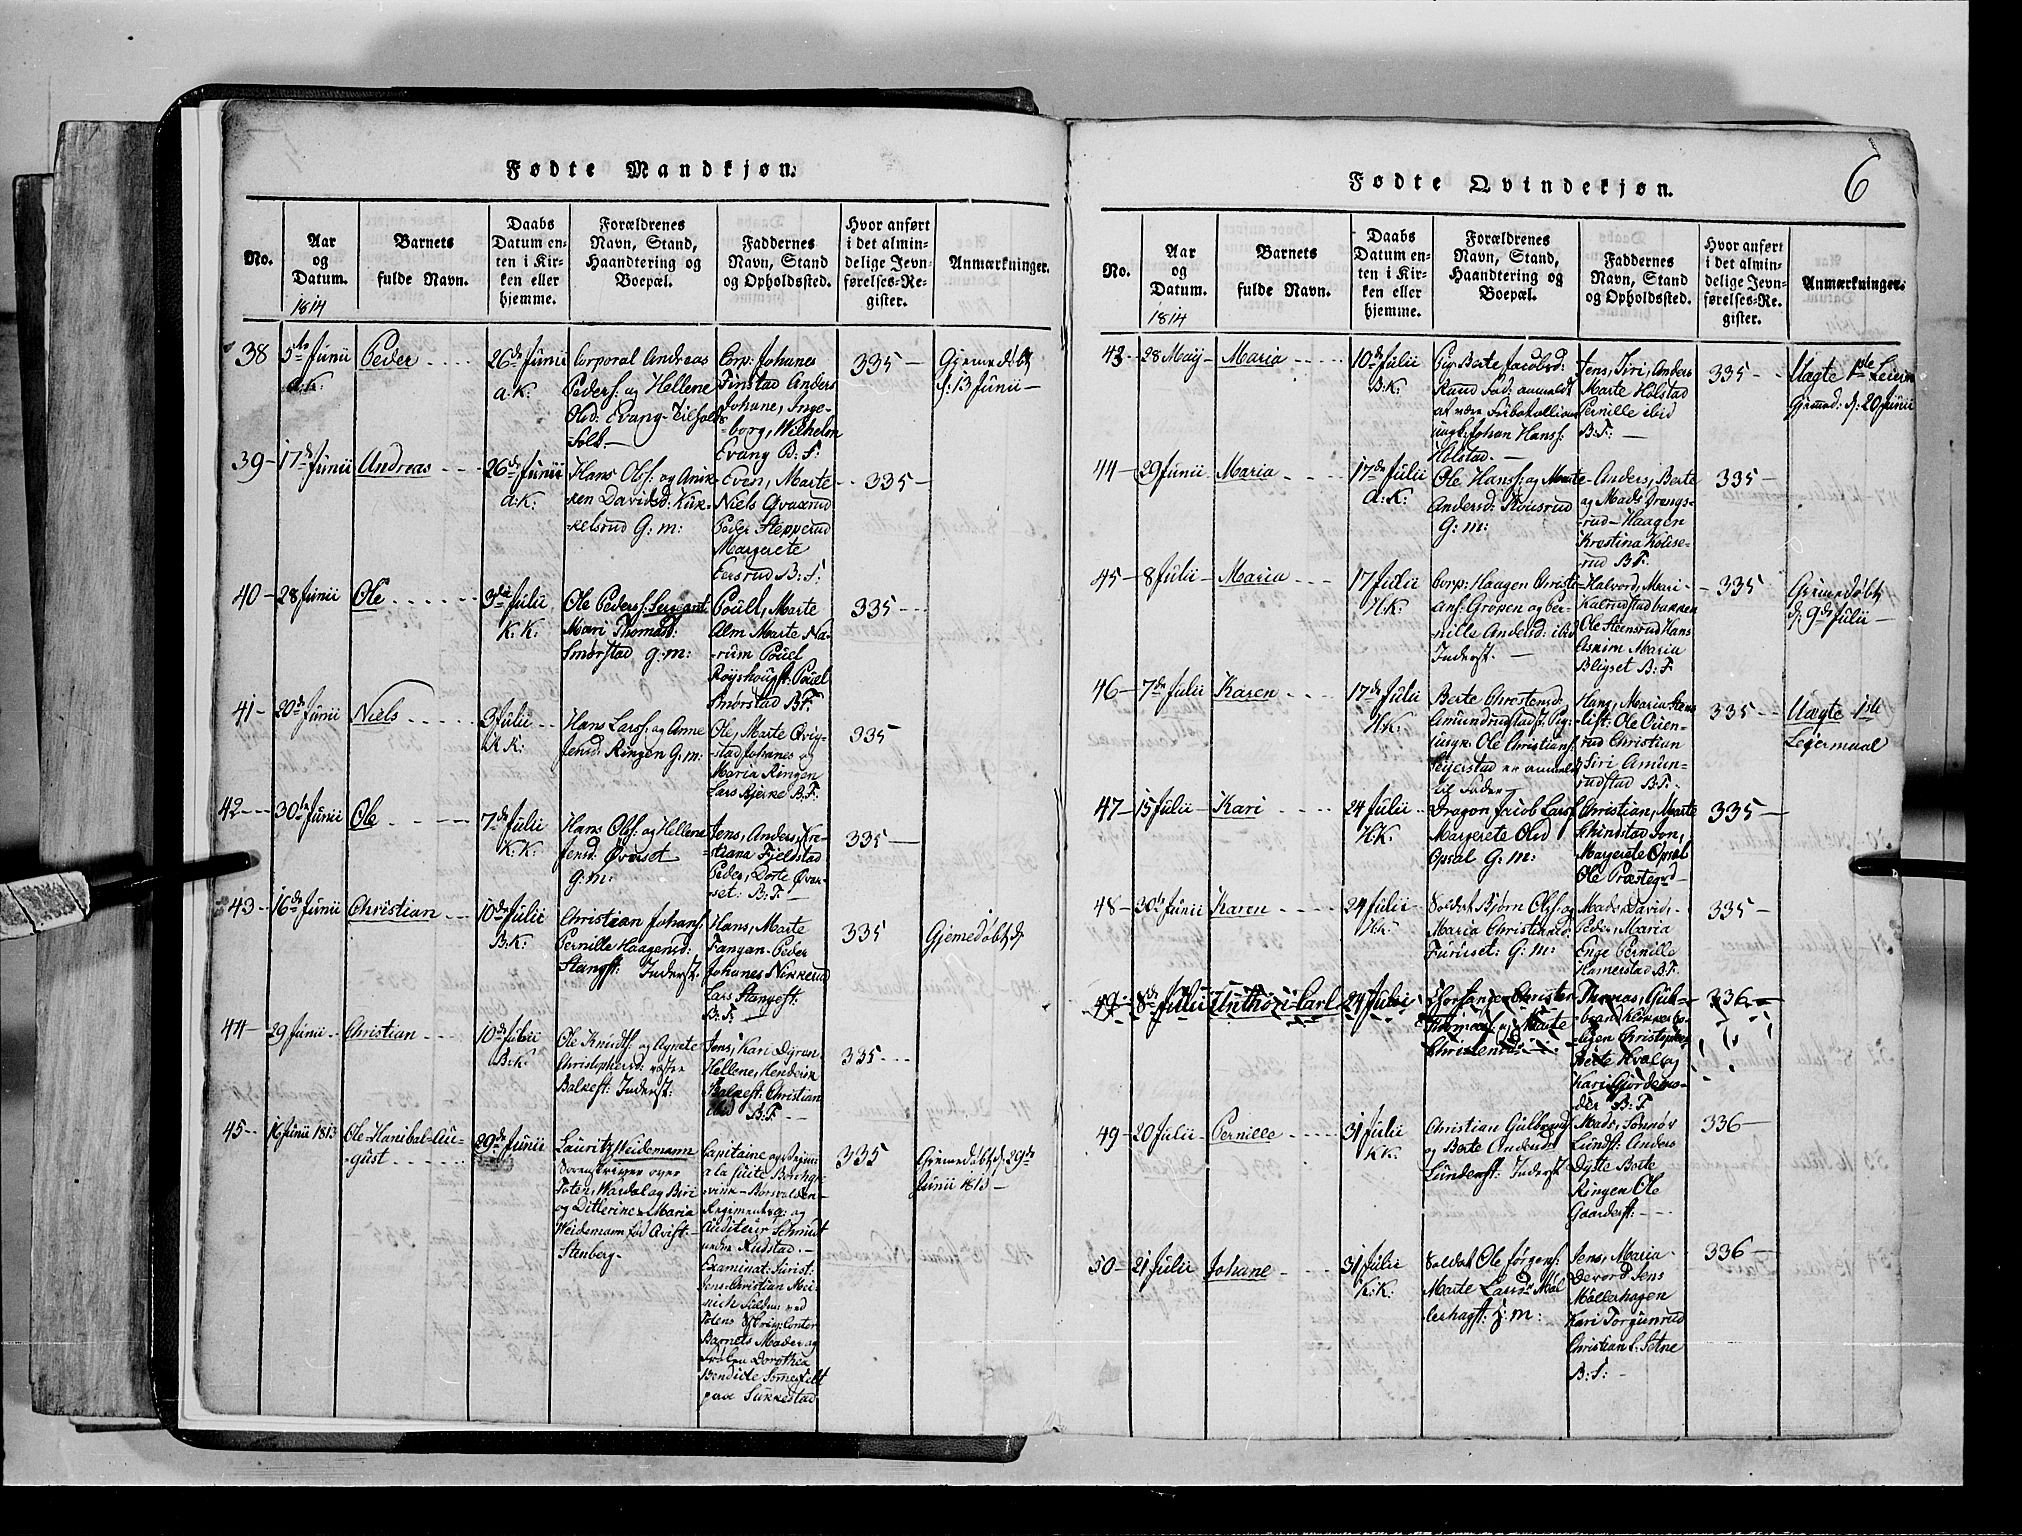 Fødte Mandkjøn.
No.
Aar
og
Datum.
1814
Barnets
fulde Navn.
Daabs
Datum en-
ten i Kir-
ken eller
hjemme.
Forældrenes
Navn, Stand,
Haandtering og
Boepæl.
Faddernes
Navn, Stand
og Opholdssted.
Hvor anført
i det almin-
delige Jevn-
førelses-Re-
gister.
Anmærkninger.
38
5te Junii
a:K:
Peder
26de Junii
a:K:
Corporal Andreas
Peders: og Hellene
Olsd: Evang
Corp: Johanes
Finstad Anders
Johane, Inge-
borg, Wilhelm
Evang B:F:
335
Gjemedøbt
d: 13 Junii
39
17de Junii
Andreas
26de Junii
a:K:
Hans Olss: og Anik-
ken Davidsd: Kuk-
kelsrud G:m:
Even, Marte
Niels Qvarud
Peder Stepperud
Margerete
Eersrud B:F:
335
40
28 Junii
Ole
3die Julii
K:K:
Ole Peders: Sergeant
Mari Thomasd:
Smørstad g:m:
Pouel, Marte
Alm Marte Na-
rum Pouel
Røyshoupt: Pouel
Smørstad B:F:
335
41
20de Junii
Niels
3 Julii
K:
Hans Larss: og Anne
Jensd: Ringen G:m:
Ole, Marte Qvig-
stad Johanes og
Maria Ringen
Lars Bjerke B:F:
335
42
30te Junii
Ole
7de Julii
K:K:
Hans Olss: og Hellene
Jensd: Øverset
G:m:
Jens, Anders, Kre-
stiana Fjeldstad
Peder, Dorte Øver-
set: B:F:
335
43
16de Junii
Christian
10de Julii
B:K:
Christian Johans:
Pernille Haagensd:
Stangst: Inderst:
Hans, Marte
Fangan Peder
Johanes Nikkerud
Lars Stangest:
B:F:
335
Gjemedøbt d
44
29 Junii
Christian
10de Julii
B:K:
Ole Knuds: og Agnete
Christophersd:
Balkest: Inderst:
Jens, Kari Dyren
Hellene, Henderik
Balkest: Christian
ibid B:F:
335
45
16 Junii 1813
Ole Hanibal Au-
gust
29de Junii
Lauritz Weidemann
Sorenskriver over
Toten, Wardal og Biri
og Ditlerine Maria
Weidemann fød Qvist:
Stenberg
Capitaine
a la suite
Regiments
Auditeur Schmidt
Rudstad
Examinat: Jurist:
Jens Christian
Totens
Barnets Moder og
Frøken Dorothea
Bendicte Somerfelt
paa Sukkestad
335
Gjemedøbt d 29de
Junii 1813
Fødte Qvindekjøn.
6
No.
Aar
og
Datum.
1814
Barnets
fulde Navn.
Daabs
Datum en-
ten i Kir-
ken eller
hjemme.
Forældrenes
Navn, Stand,
Haandtering og
Boepæl.
Faddernes
Navn, Stand
og Opholdssted.
Hvor anført
i det almin-
delige Jevn-
førelses-Re-
gister.
Anmærkninger.
43
28 Maij
Maria
10de Julii
B:K:
Pig: Berte Jacobsd:
anmeldt
at være
ungk: Johan Hanss:
Holstad
Jens, Siri, Anders
Marte Holstad
Pernille ibid
B:F:
335
Uægte 1ste
Gjemed: d: 20 Junii
44
29 Junii
Maria
17de Julii
a:K:
Ole Hanss: og Marte
Andersd: Kousrud
G:m:
Anders, Berte
og Mads
rud Haagen
Krestina Kouse-
rud B:F:
335
45
8 Julii
Maria
17 Julii
H:K:
Corp: Haagen Christi-
ans: Grøpen og Per-
nille Andersd: ibid
Inderst:
Halvord, Mari
Kalrudstadbakken
Ole Steensrud Hans
Askim Maria
Bligset B:F:
335
Gjemedøbt
d: 9de Julii
46
7de Julii
Karen
17de Julii
H:K:
Berte Chrestensd:
Amundrudstad: Pig:
ungk: Ole Christians:
Seierstad er anmeldt
til Fader
Hans, Maria
Ole
rud Christian
Siri Amun-
rudstad B:F:
335
Uægte 1ste
Lejermaal
47
15 Julii
Kari
24 Julii
H:K:
Dragon Jacob Larss:
Margerete Olsd
Opsal G:m:
Christian, Marte
Skindstad Jon,
Margerete Opsal
Ole Præstegrd
335
48
30te Junii
Karen
24 Julii
H:K:
Soldat Bjørn Olss: og
Maria Christensd:
Furuset: G:m:
Mads, David,
Peder, Maria
Enge Pernille
Hamerstad B:F:
335
49
8de Julii
Anthon Carl
24 Julii
Christen
Thomass: og Marte
Christensd:
Thomas, Gul-
brand
Christopher
Berte Hval og
Kari
B:F:
336
49
20 Julii
Pernille
31 Julii
K:K:
Christian Gulbrands:
og Berte Andersdr
Lundest: Inderst
Mads,
Lundst: Anders
Dyste Berte
Ringen Ole
Gaarderst:
336
50
21 Julii
Johane
31 Julii
K:K:
Soldat Ole Jørgens:
Marte Larsdr Møl-
lerhagst:
Jens, Maria
Jens
Møllerhagen
Kari Torgunrud
Christian
B:F:
336